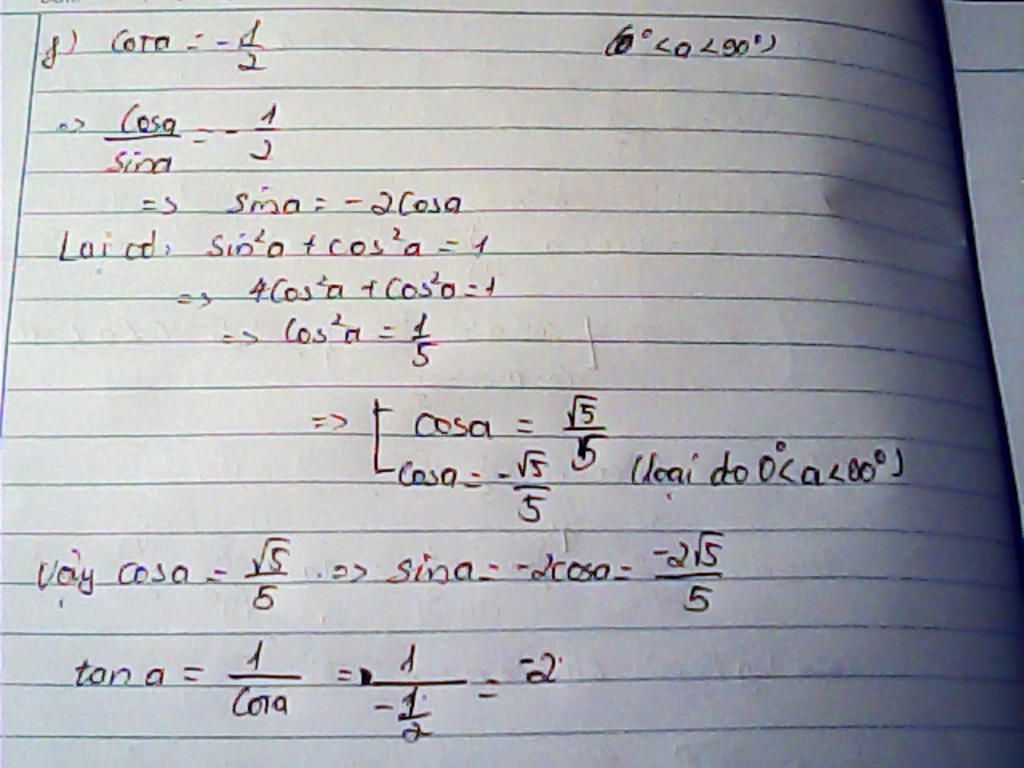 f) cota = -1/2 (0° < a < 90°)
=> cosa/sina = -1/2
=> sina = -2cosa
Lại có: sin²a + cos²a = 1
=> 4cos²a + cos²a = 1
=> cos²a = 1/5
=> [ cosa = √5/5
cosa = -√5/5 (loại do 0° < a < 90°)
Vậy cosa = √5/5 => sina = -2cosa = -2√5/5
tan a = 1/cota = 1/(-1/2) = -2